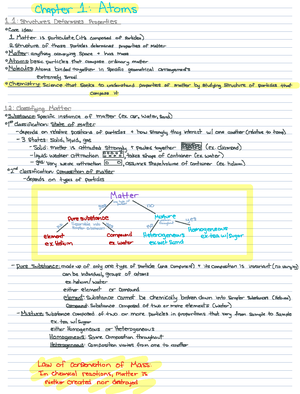 Chapter 1: Atoms
1.1: Structures Determines Properties
*Core idea:
1. Matter is particulate (its composed of particles)
2. Structure of those Particles determines properties of matter
*Matter: anything occupying space + has mass
*Atoms: basic particles that compose ordinary matter
*Molecules: Atoms binded together in specific geometrical arrangements
Extremely Small
*Chemistry: Science that seeks to understand properties of matter by studying structure of particles that
compose it
1.2: Classifying Matter
*Substance: Specific instance of matter (ex. air, water, Sand)
*1st classification: State of matter
-depends on relative positions of particles + how strongly they interact w/ one another (relative to temp)
- 3 States: Solid, liquid, gas
- Solid: matter is attracted strongly + packed together (ex. Diamond)
- liquid: weaker attraction takes shape of container (ex. water)
- gas: very weak attraction assumes shape/volume of container (ex. helium)
*2nd classification: Composition of matter
-depends on types of particles
Matter
Pure Substance
Mixture
NO
YES
Element
ex. Helium
Compound
ex. Water
Heterogeneous
ex. wet Sand
Homogeneous
ex. tea w/ Sugar
- Pure Substance: made up of only one type of particle (one component) + its composition is invariant (no varying)
can be individual, groups of atoms
ex. helium/water
either element or Compound
element: Substance cannot be chemically broken down into Simpler Substances (helium)
Compound: Substance Composed of two or more elements (water)
- Mixture: Substance Composed of two or more particles in proportions that vary from Sample to Sample
ex. tea w/ Sugar
either Homogeneous or heterogeneous
Homogeneous: Same Composition throughout
Heterogeneous: Composition varies from one to another
Law of Conservation of Mass:
In Chemical reactions, Matter is
Neither Created nor destroyed